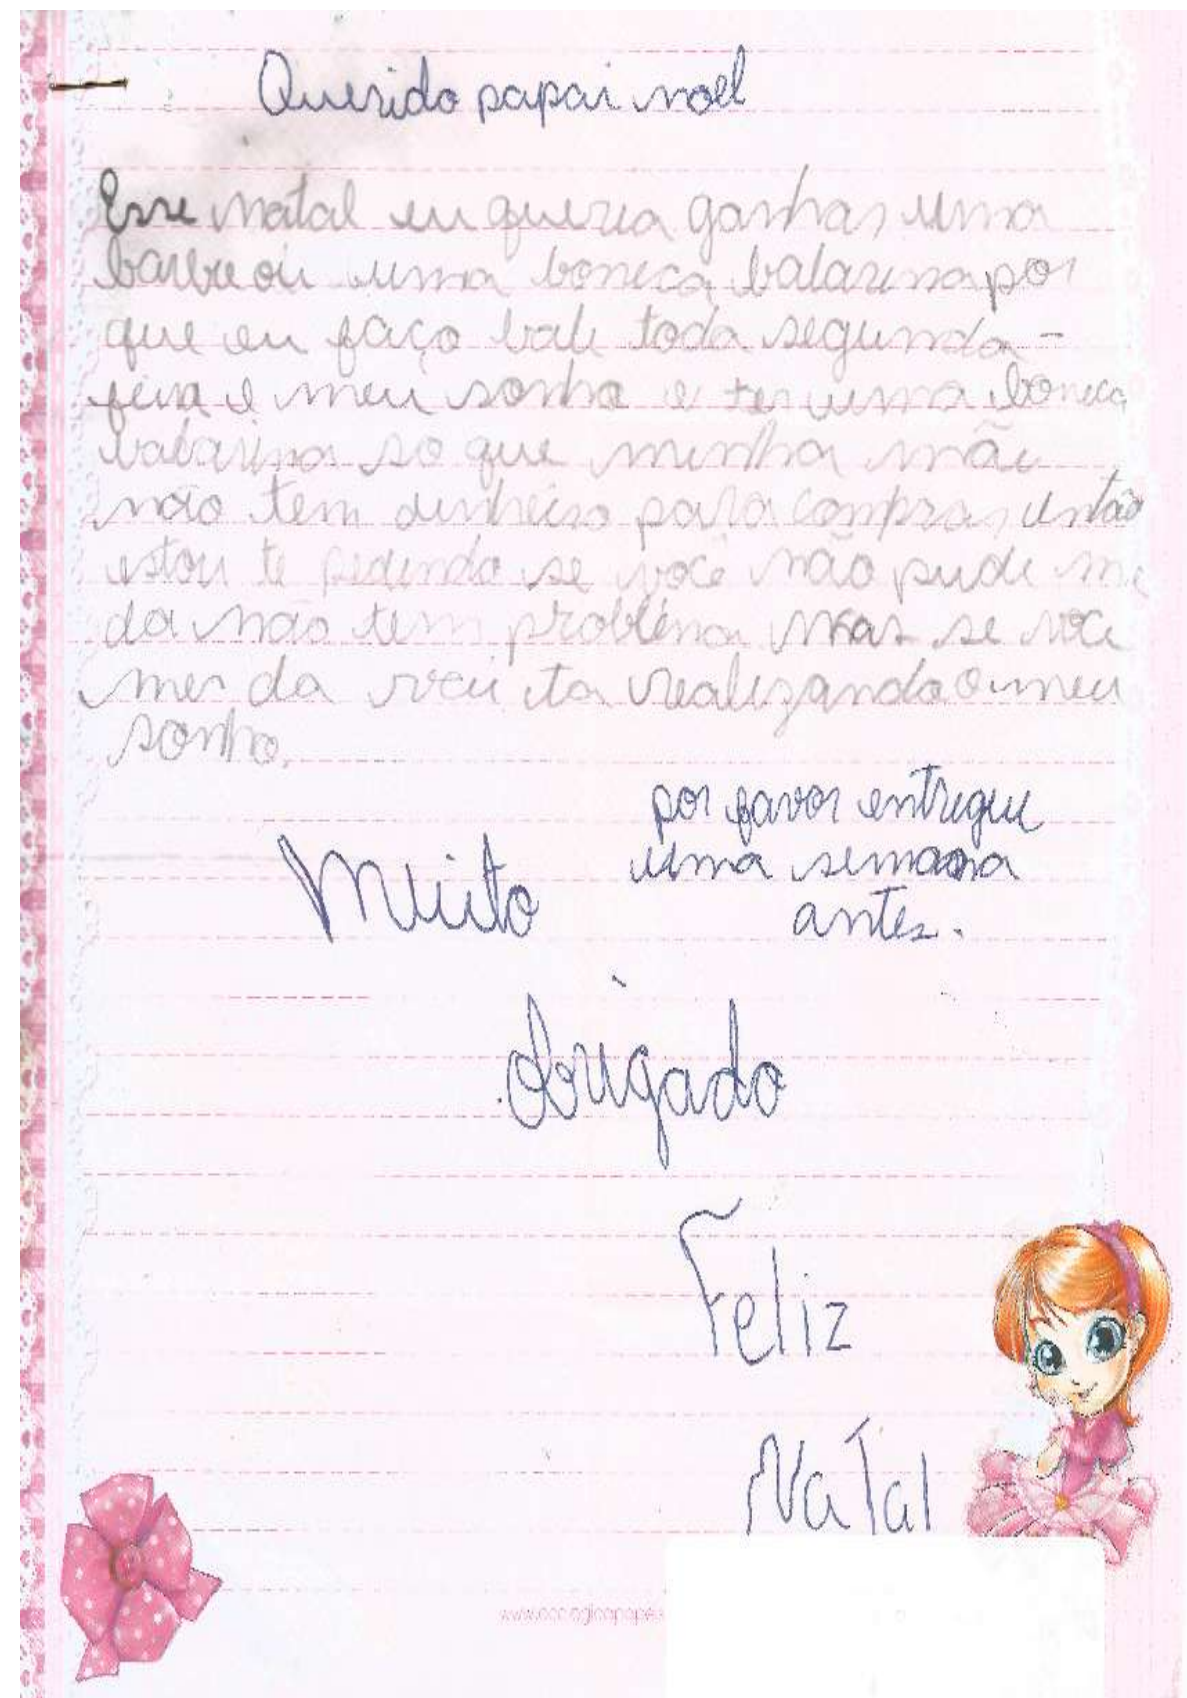 Querido papai noel
Esse natal eu queria ganhar uma
barbie ou uma boneca balarina por
que eu faço balé toda segunda-
feira e meu sonho e ter uma boneca
balarina so que minha mãe
não tem dinheiro para comprar então
estou te pedindo se você não pude me
da não tem problema mas se você
me da voce ta realizando o meu
sonho.
por favor entregue
uma semana
antes.
Muito
obrigado
Feliz
Natal